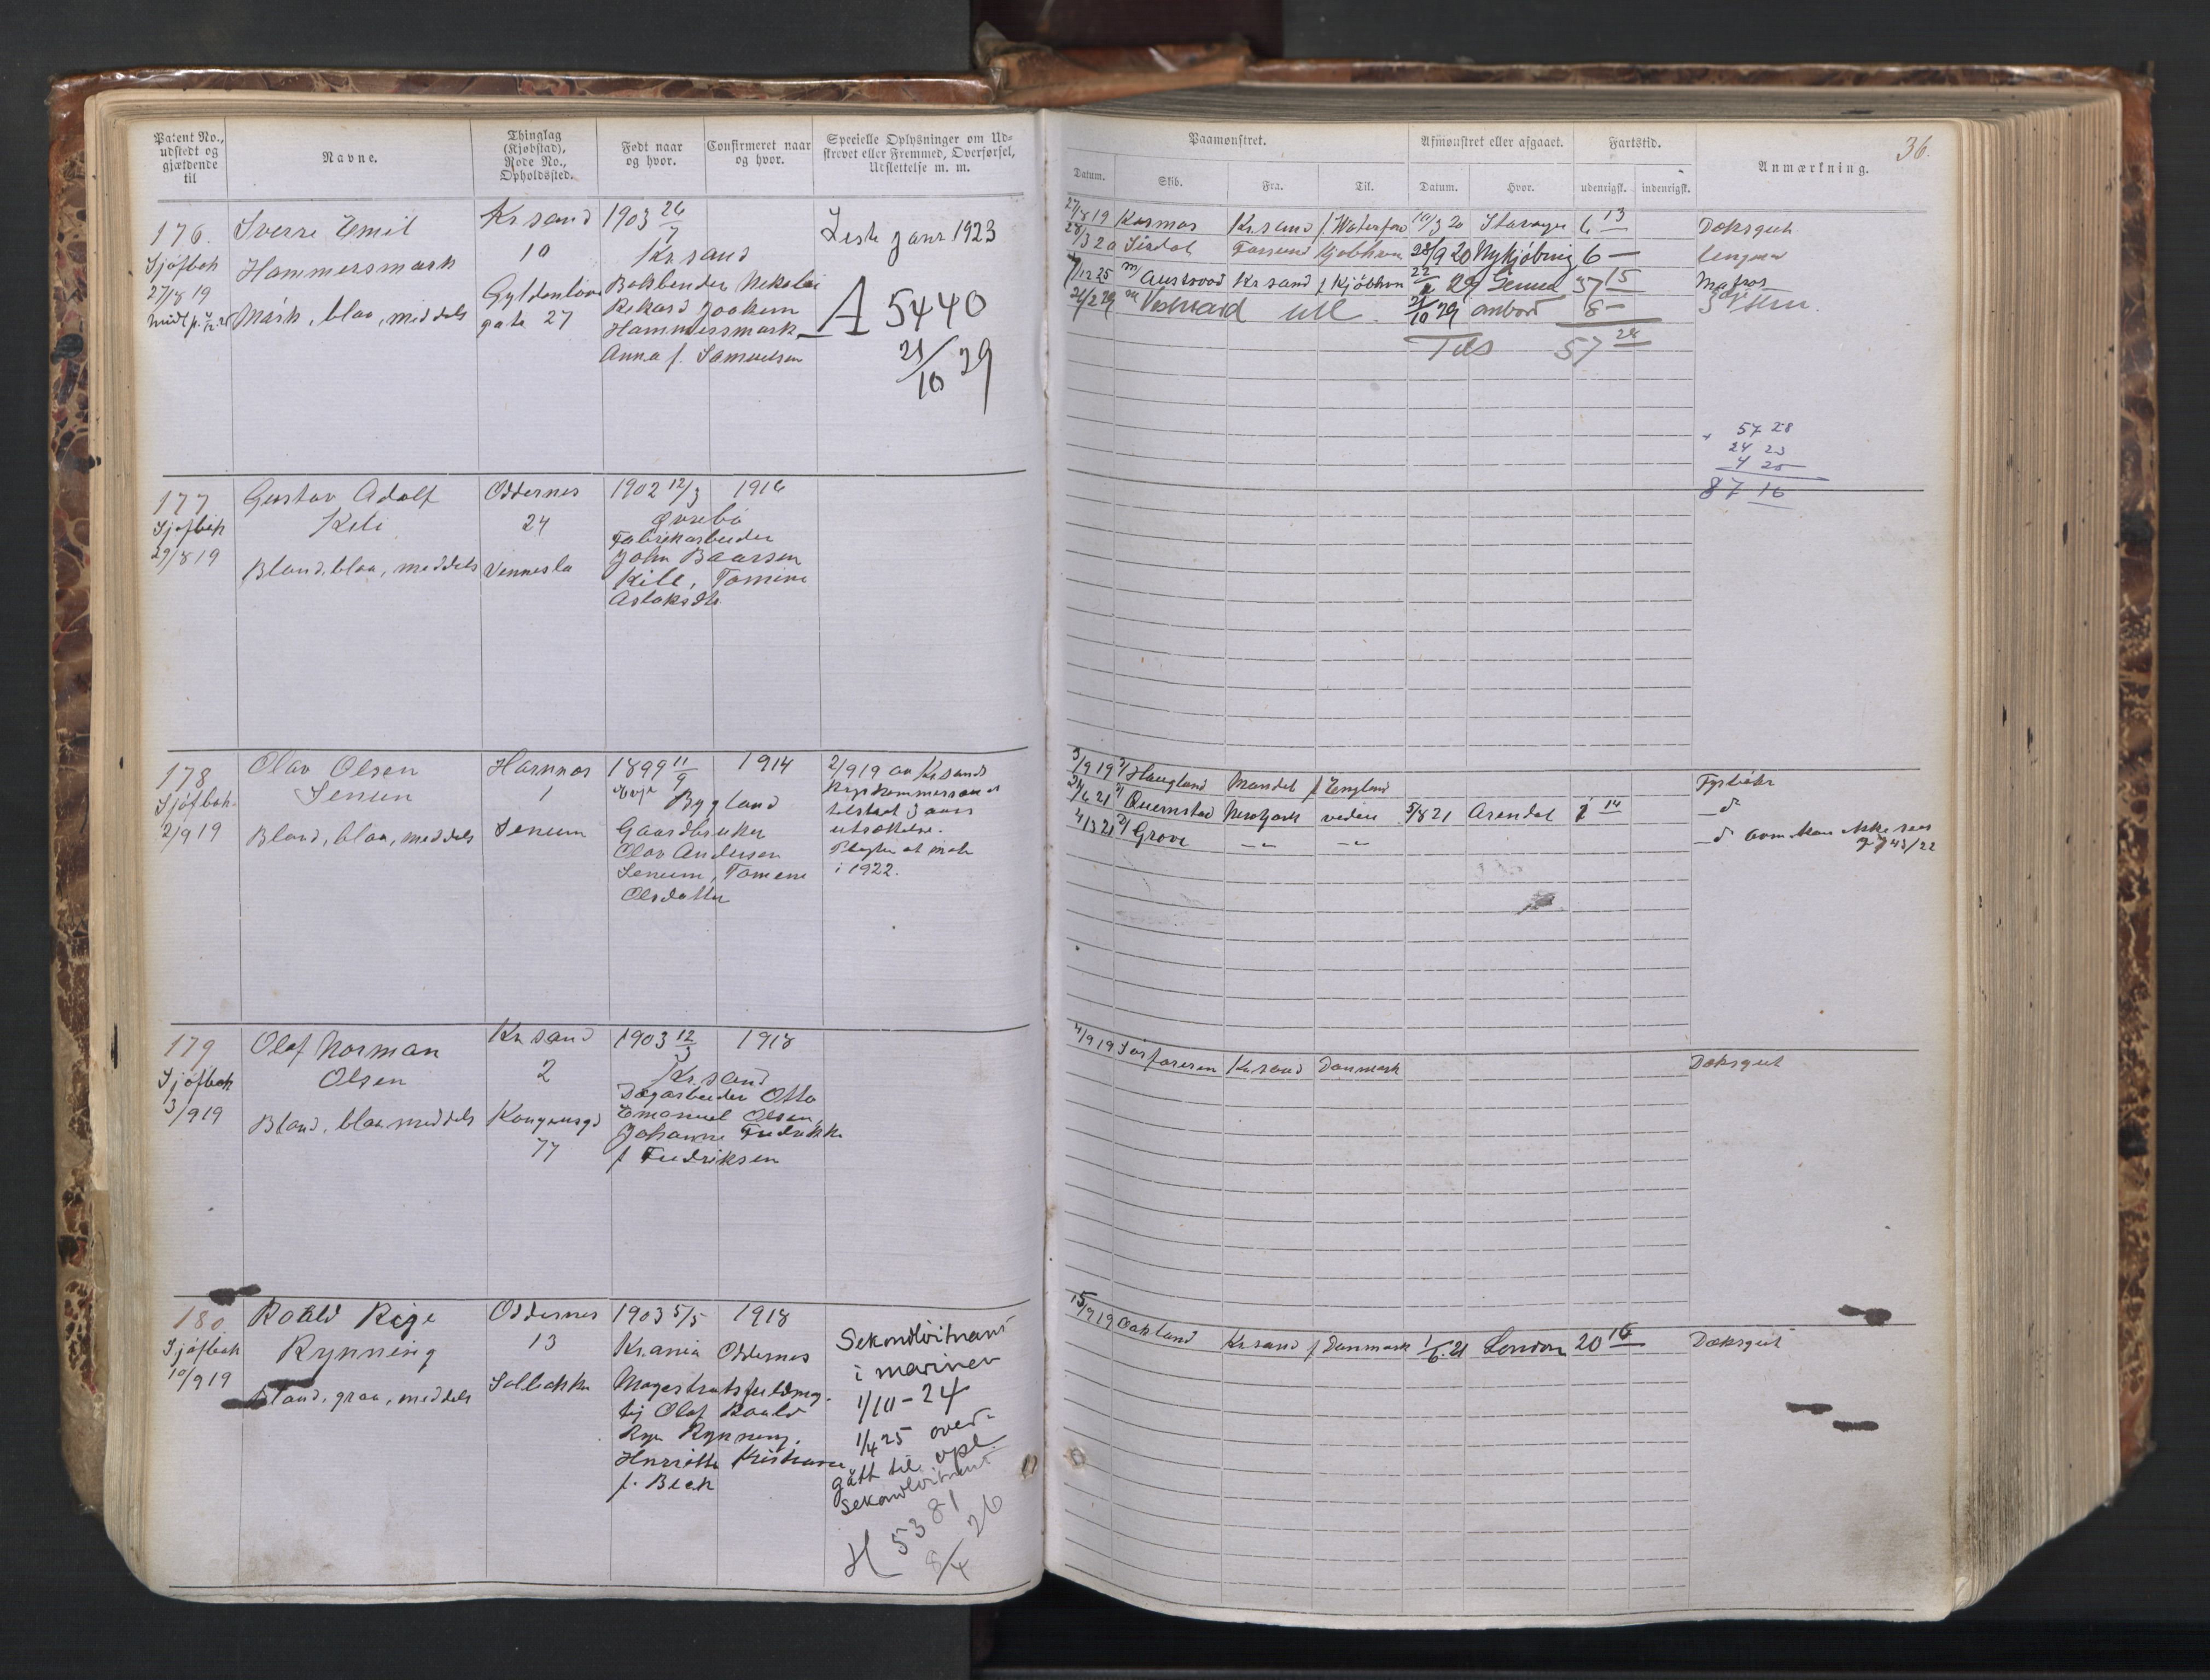 Patent No., udstedt og gjældende til
Navne.
Thinglag (Kjøbstad), Rode No., Opholdssted.
Født naar og hvor.
Confirmeret naar og hvor.
Specielle Oplysninger om Udskrevet eller Fremmed, Overførsel, Udslettelse m. m.
176.
Sjøfbok
27/8 19
Sverre Emil
Hammersmark
Mørk, blaa, middels
Kr.sand
10
Gyldenløves
gate 27
1903 26/7
Kr.sand
Bokbinder Nikolai
Rikard Joakim
Hammersmark
Anna f. Samuelsen
Liste janr 1923
A 5440
21/10 29
177
Sjøfbok
29/8 19
Gustav Adolf
Kile
Blond, blaa, middels
Oddernes
24
Vennesla
1902 12/3
1916
Øvrebø
Fabrikarbeider
John Baarsen
Kile, Tomine
Aslaksdtr.
178
Sjøfbok
2/9 19
Olav Olsen
Senum
Blond, blaa, middels
Hornnes
1
Senum
1899 11/9
1914
Bygland
Gaardbruker
Olav Andersen
Senum, Tomine
Olsdatter
2/9 19 av Kr.sands
tilstaat 3 aars
utsættelse.
Pligter at møte
i 1922.
179
Sjøfbok
3/9 19
Olaf Norman
Olsen
Blond, blaa, middels
Kr.sand
2
Kongensgt
77
1903 12/3
1918
Kr.sand
Dagarbeider Otto
Emanuel Olsen
Johanne Fredrikke
f. Fredriksen
180
Sjøfbok
10/9 19
Roald Rije
Rynning
Blond, graa, middels
Oddernes
13
Solbakken
1903 5/5
1918
Kr.ania Oddernes
Magistratsfuldmeg-
tig Olaf Roald
Rye Rynning,
Henriette Kristiane
f. Beck
Sekondløitnant
i marinen
1/10-24
1/4 25 over-
gått til vpl.
sekondløitnant
H 5381
8/4 26
36.
Paamønstret.
Afmønstret eller afgaaet.
Fartstid.
Anmærkning.
Datum.
Skib.
Fra.
Til.
Datum.
Hvor.
udenrigsk.
indenrigsk.
27/8 19 Kosmos Kr.sand f Waterford 10/3 20 Stavanger 6 13 Dæksgut
28/3 20 Sirdal Farsund Kjøbhvn 28/9 20 Nykjøbing 6 — Jungmand
7/12 25 m/ Austvard Kr.sand f Kjøbhvn 29 Genua 37 15 Matros
21/10 29 ombord 8 —
Tils 57 28
57 28
24 23
4 25
87 16
3/9 19 Haugland Mandal f England Fyrbøter
24/6 21 Quernstad NewYork veden 5/8 21 Arendal 1 14 — d
4/3 21 Grove — " — — " — — d
4/9 19 Sørfareren Kr.sand Danmark Dæksgut
15/9 19 Oakland Kr.sand f Danmark 1/6 21 London 20 16 Dæksgut